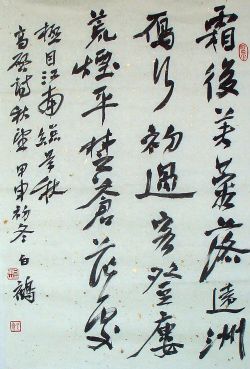 霜後芙蓉落遠洲
雁行初過客登樓
荒煙平楚蒼茫處
極目江南總是秋
高啓詩秋望 甲申初冬 白鶴